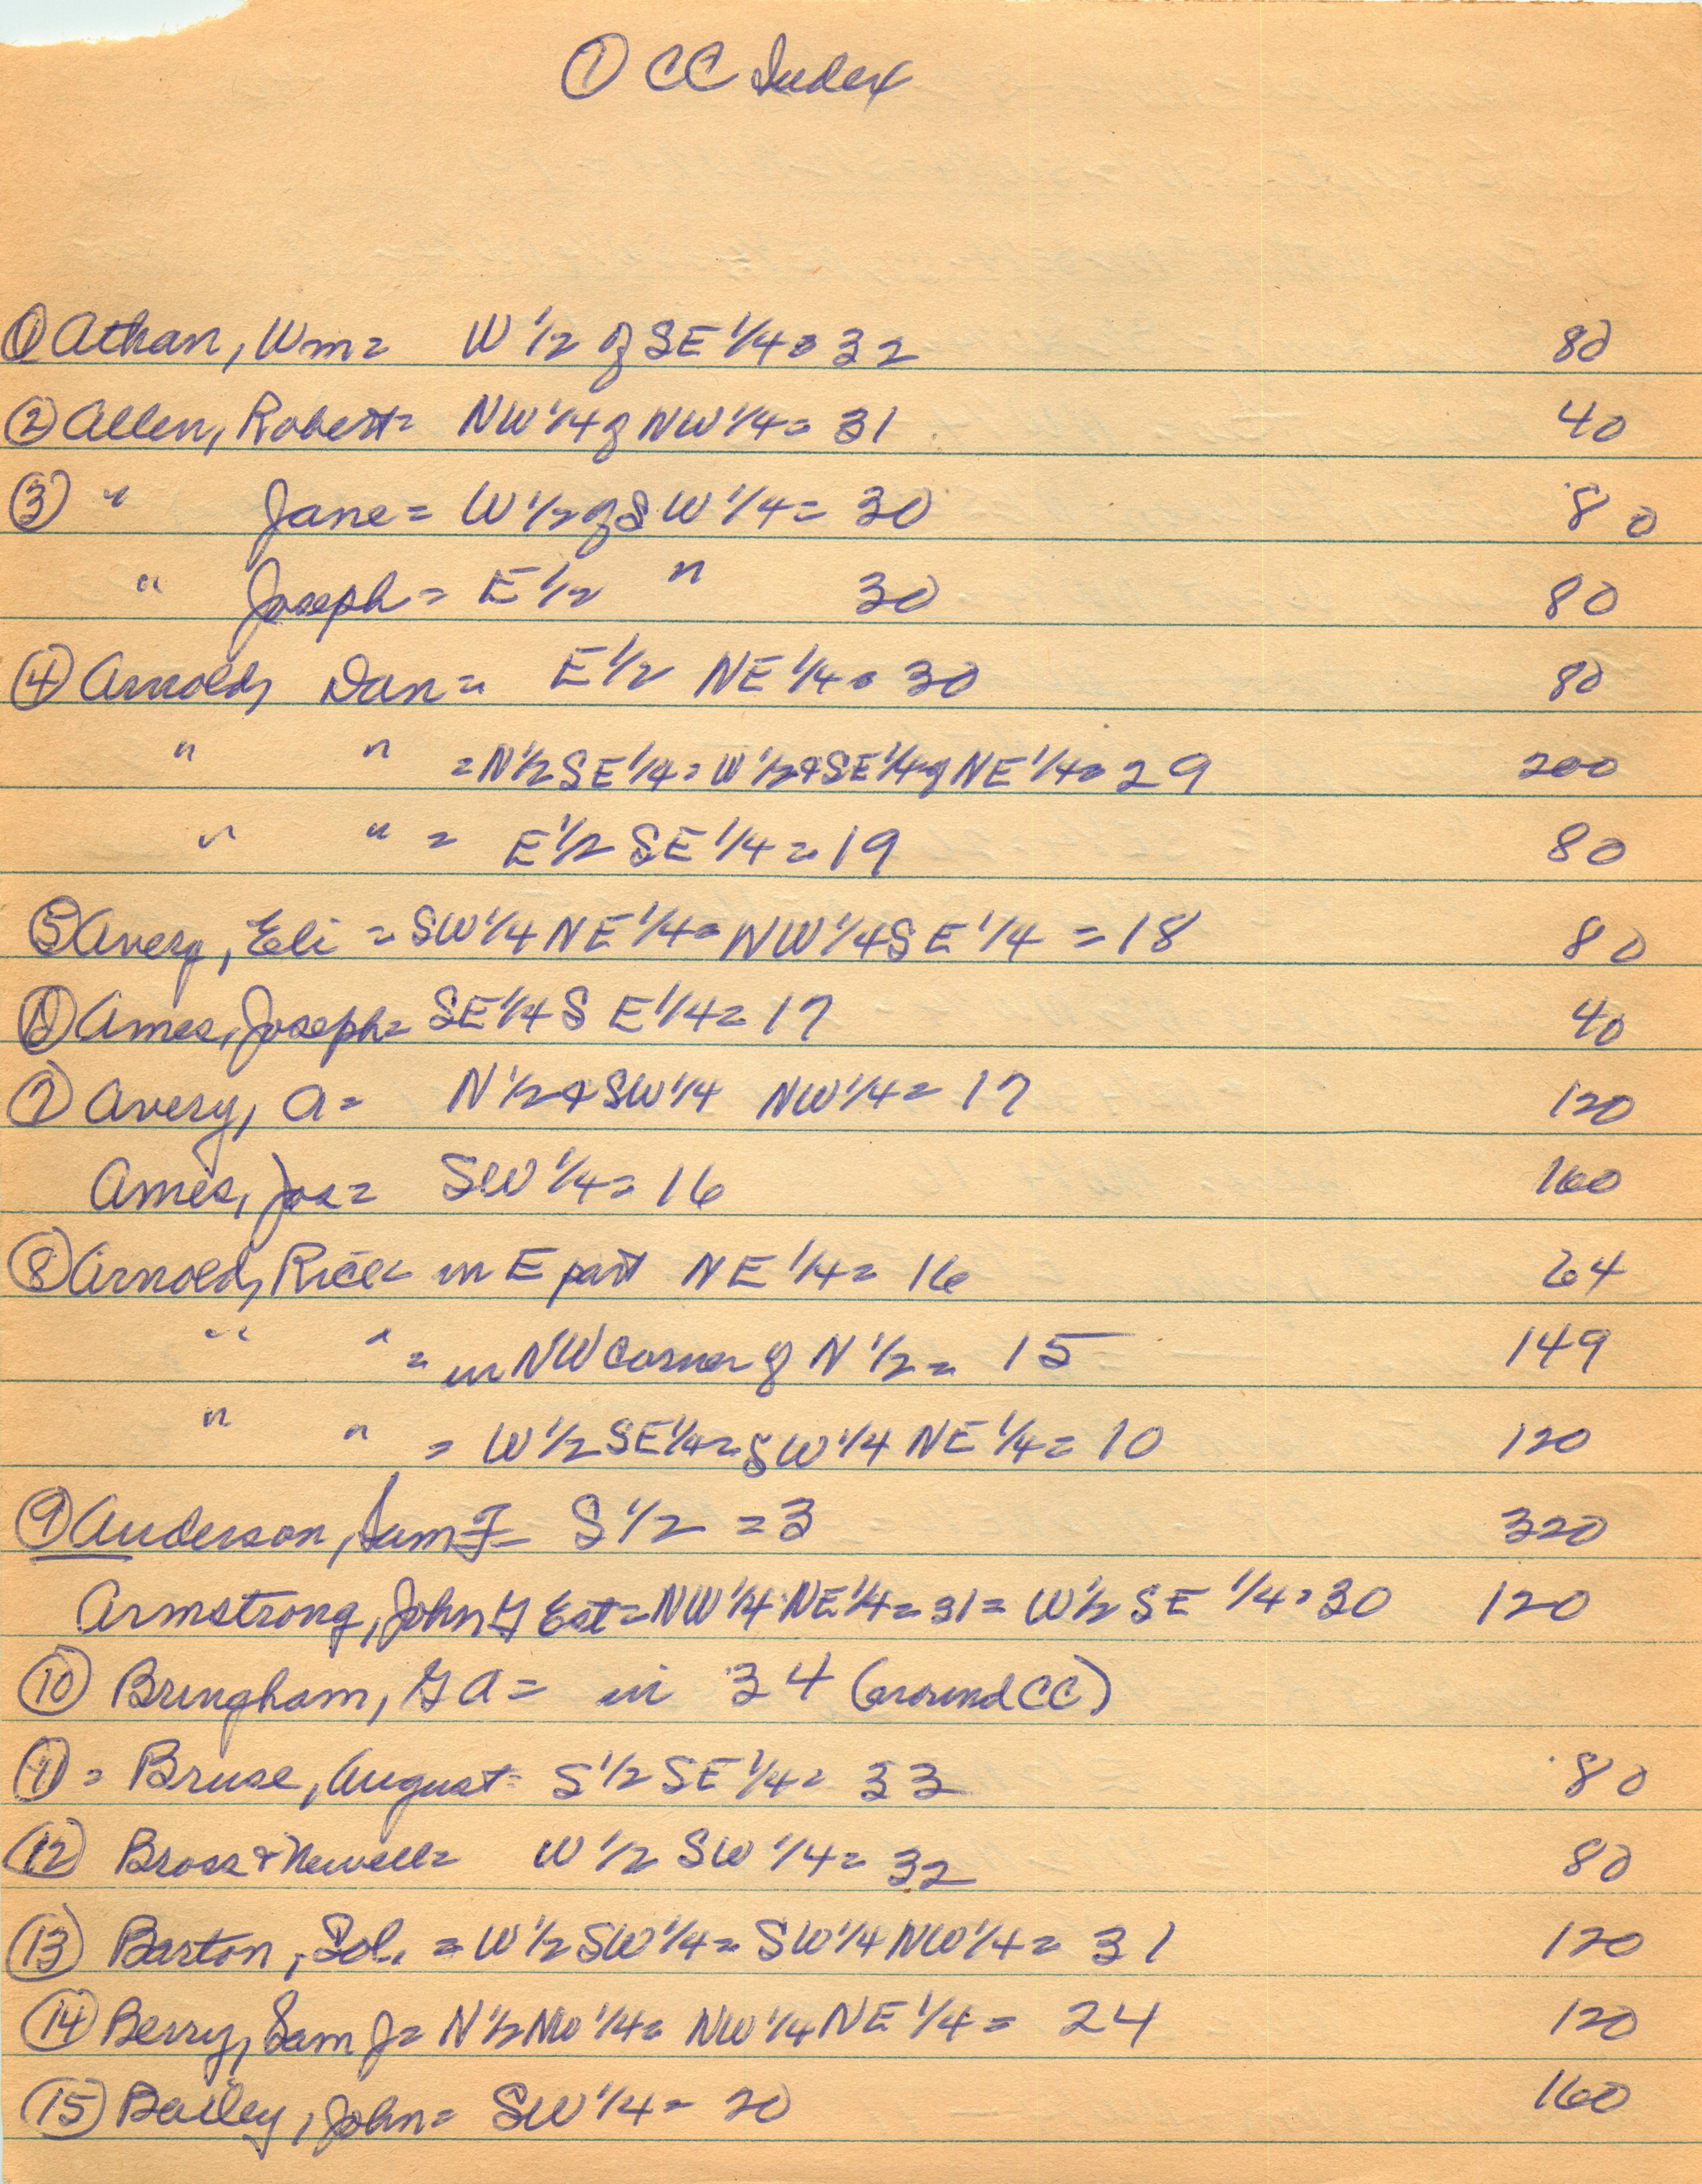 ① CC Index
① Athan, Wm = W 1/2 of SE 1/4 = 32 80
② Allen, Robert = NW 1/4 of NW 1/4 = 31 40
③ " Jane = W 1/2 of SW 1/4 = 30 80
" Joseph = E 1/2 " 30 80
④ Arnold, Dan = E 1/2 NE 1/4 = 30 80
" " = N 1/2 SE 1/4 = W 1/2 & SE 1/4 of NE 1/4 = 29 200
" " = E 1/2 SE 1/4 = 19 80
⑤ Avery, Eli = SW 1/4 NE 1/4 = NW 1/4 SE 1/4 = 18 80
⑥ Ames, Joseph = SE 1/4 S E 1/4 = 17 40
⑦ Avery, A = N 1/2 & SW 1/4 NW 1/4 = 17 120
Ames, Jos = SW 1/4 = 16 160
⑧ Arnold, Rice = in E part NE 1/4 = 16 64
" " = in NW corner of N 1/2 = 15 149
" " = W 1/2 SE 1/4 = SW 1/4 NE 1/4 = 10 120
⑨ Anderson, Sam F = S 1/2 = 3 320
Armstrong, John G Est = NW 1/4 NE 1/4 = 31 = W 1/2 SE 1/4 = 30 120
⑩ Bringham, G A = in 34 (around CC)
⑪ = Bruse, August = S 1/2 SE 1/4 = 33 80
⑫ Bross & Newell = W 1/2 SW 1/4 = 32 80
⑬ Barton, Sol. = W 1/2 SW 1/4 = SW 1/4 NW 1/4 = 31 120
⑭ Berry, Sam J = N 1/2 NW 1/4 = NW 1/4 NE 1/4 = 24 120
⑮ Bailey, John = SW 1/4 = 20 160